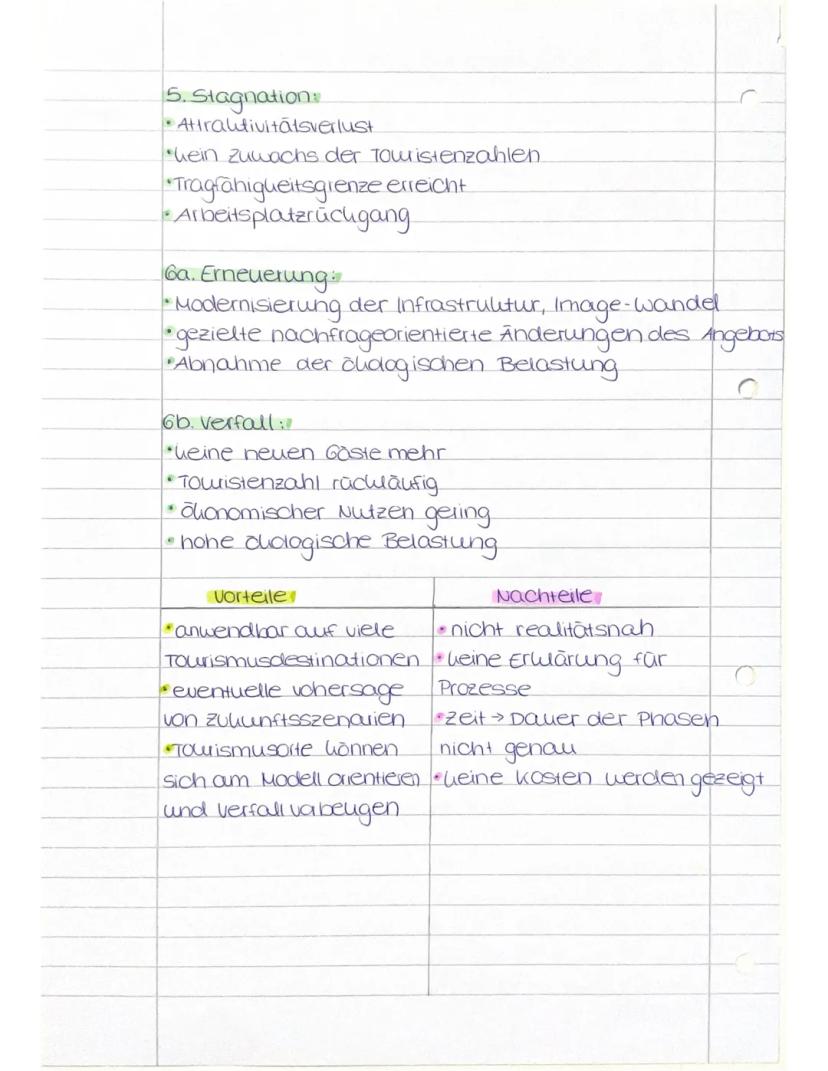 5. Stagnation:
• Attraktivitätsverlust
• kein Zuwachs der Touristenzahlen
• Tragfähigkeitsgrenze erreicht
• Arbeitsplatzrückgang
6a. Erneuerung:
• Modernisierung der Infrastruktur, Image-Wandel
• gezielte nachfrageorientierte Änderungen des Angebots
• Abnahme der ökologischen Belastung
6b. Verfall:
• keine neuen Gäste mehr
• Touristenzahl rückläufig
• ökonomischer Nutzen gering
• hohe ökologische Belastung
Vorteile
• anwendbar auf viele
Tourismusdestinationen
• eventuelle Vohersage
von Zukunftsszenarien
• Tourismusorte können
sich am Modell orientieren
und Verfall vorbeugen
Nachteile
• nicht realitätsnah
• keine Erklärung für
Prozesse
• Zeit → Dauer der Phasen
nicht genau
• keine Kosten werden gezeigt